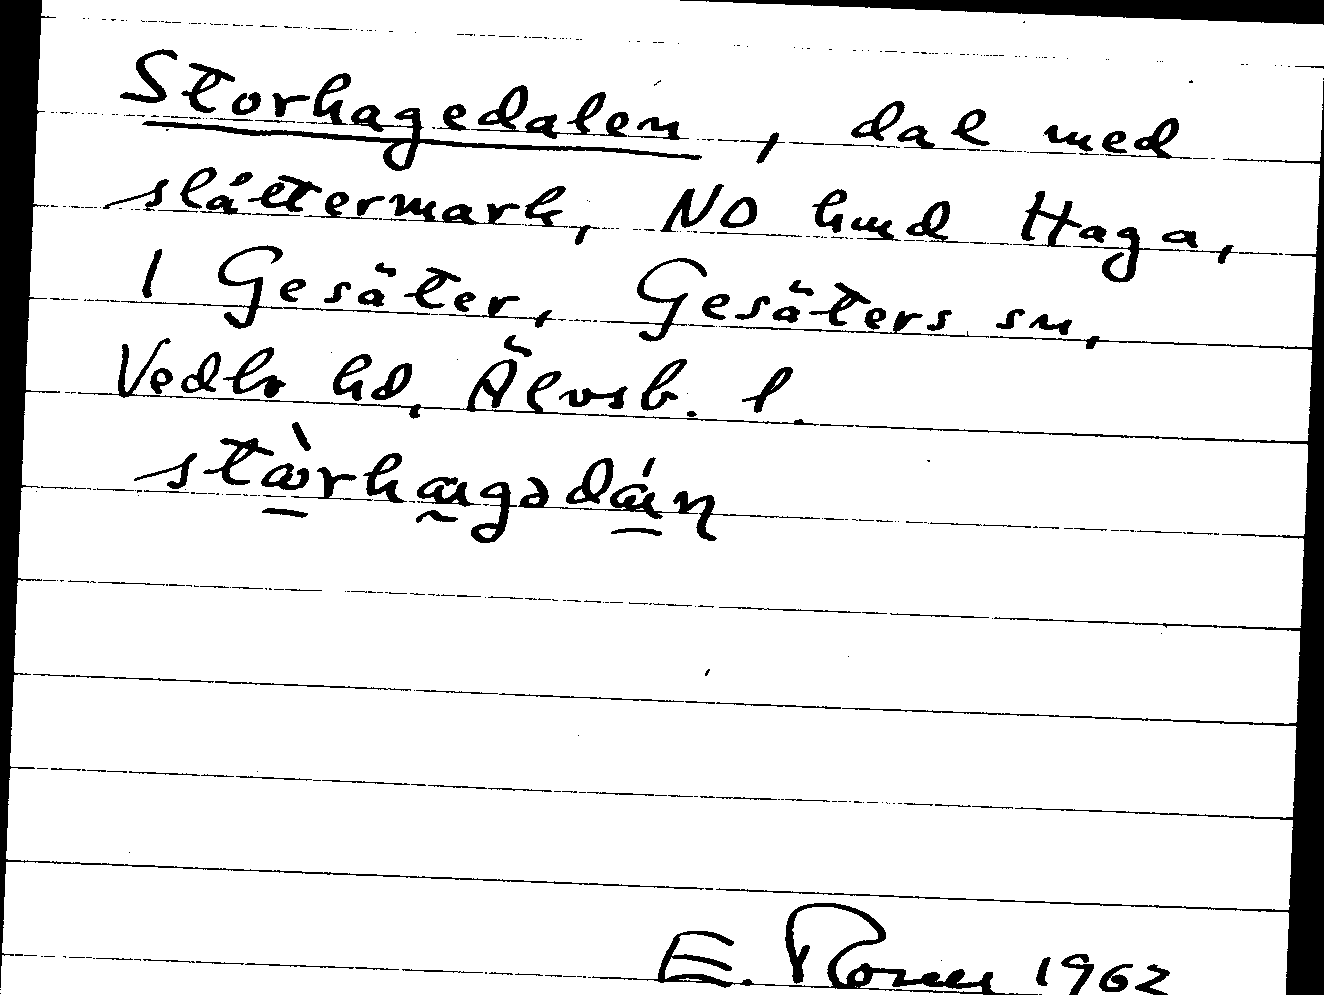 Storhagedalen, dal med
slåttermark, NO hmd Haga,
1 Gesäter, Gesäters sn,
Vedbo hd, Älvsb. l.
E. 1962